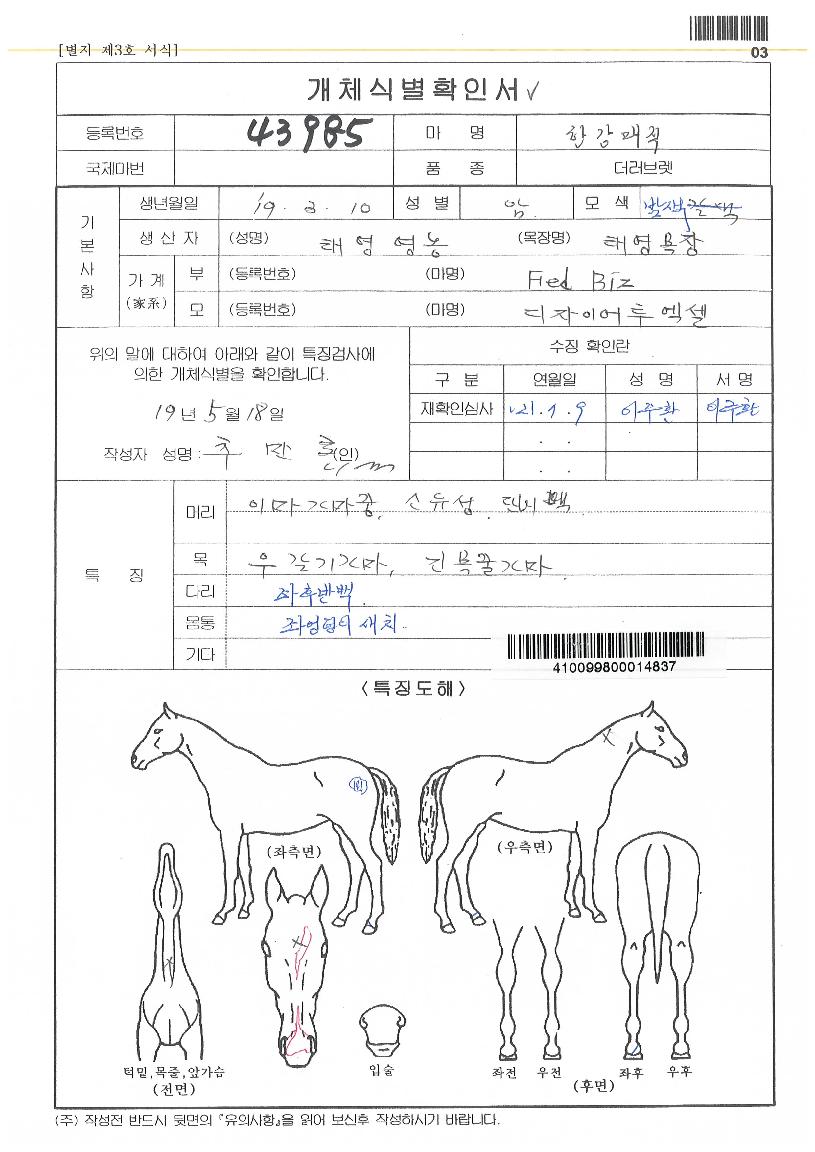 [별지 제3호 서식]
03
개체식별확인서✓
등록번호 43985 마 명 한강매직
국제마번 품 종 더러브렛
기본사항
생년월일 '19. 3. 10 성 별 암 모 색
생산자 (성명) 태영영농 (목장명) 태영목장
가계 (家系) 부 (등록번호) (마명) Fed Biz
모 (등록번호) (마명) 디자이어투엑셀
위의 말에 대하여 아래와 같이 특징검사에
의한 개체식별을 확인합니다.
19년 5월 18일
작성자 성명 : 추 만 (인)
수징 확인란
구 분 연월일 성 명 서 명
재확인심사 '21. 1. 9 이주환 이주환
. .
. .
특 징
머리 이마가마중, 소유성,
목 우갈기가마, 긴목줄가마.
다리 좌후반백.
몸통 좌엉덩이 새치.
기타
410099800014837
<특징도해>
(좌측면)
(우측면)
턱밑,목줄,앞가슴
(전면)
입술
좌전 우전
좌후 우후
(후면)
(주) 작성전 반드시 뒷면의 『유의사항』을 읽어 보신후 작성하시기 바랍니다.